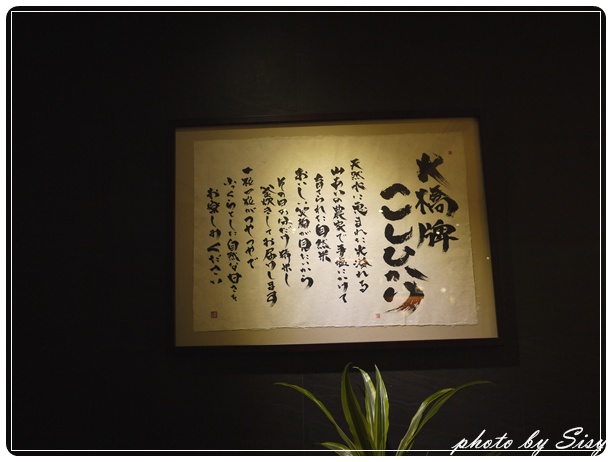 大橋牌
こしひかり
天然水に恵まれた水溢れる
山あいの農家で手塩にかけて
育てられた自然米
おいしい笑顔が見たいから
その日の分だけ精米し
釜炊きしてお届けします
一粒一粒がつやつやで
ふっくらとした自然な甘さを
お楽しみください
photo by Sisy